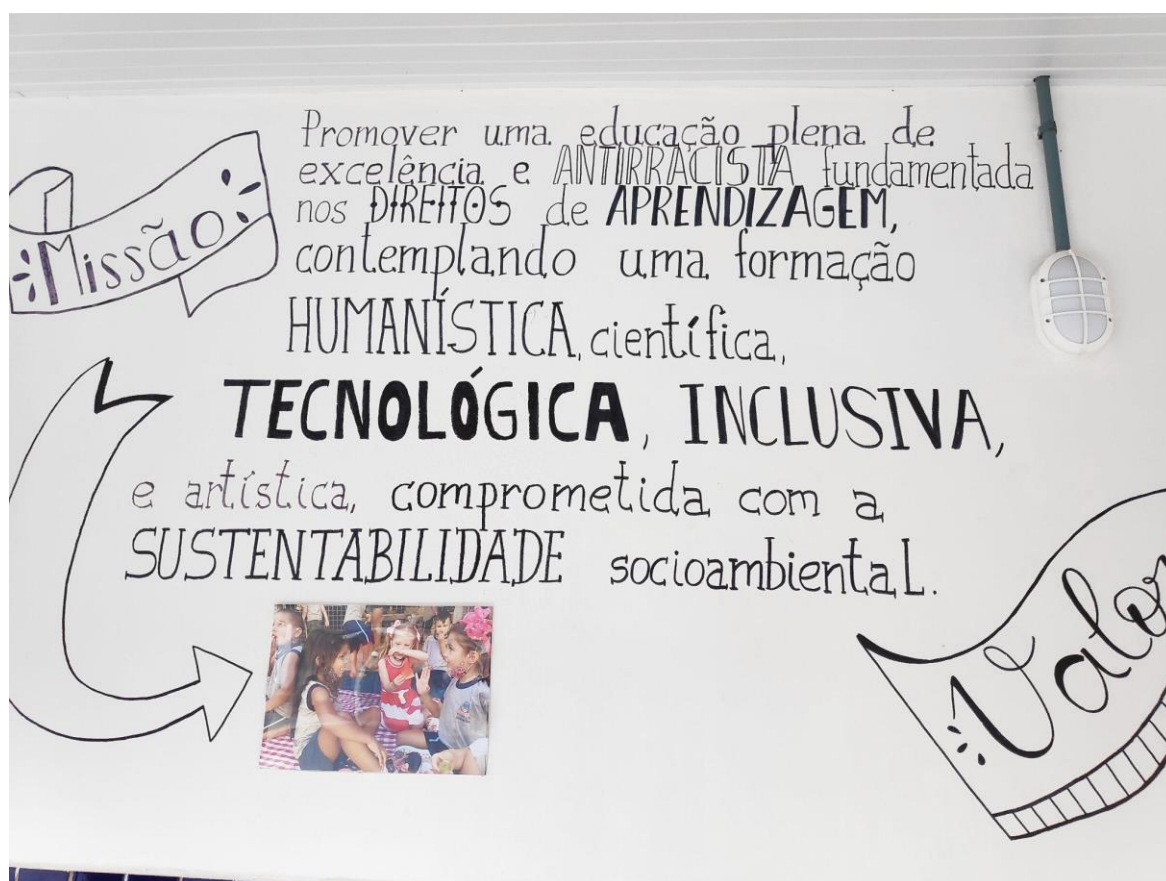 Missão
Promover uma educação plena de
excelência e ANTIRRACISTA fundamentada
nos DIREITOS de APRENDIZAGEM,
contemplando uma formação
HUMANÍSTICA, científica,
TECNOLÓGICA, INCLUSIVA,
e artística, comprometida com a
SUSTENTABILIDADE socioambiental.
Valor